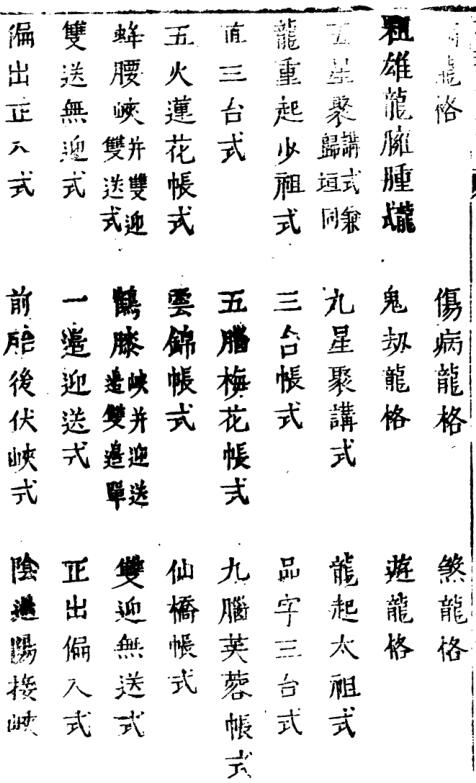 龍格　傷病龍格　煞龍格
粗雄龍臃腫龍式　鬼刼龍格　遊龍格
五星聚講式兼歸垣同　九星聚講式　龍起太祖式
龍重起少祖式　三台帳式　品字三台式
直三台式　五腦梅花帳式　九腦芙蓉帳式
五火蓮花帳式　雲錦帳式　仙橋帳式
蜂腰峽并雙迎雙送式　鶴膝峽并迎送邊雙邊單　雙迎無送式
雙送無迎式　一邊迎送式　正出偏入式
偏出正入式　前胎後伏峽式　陰陽接峽